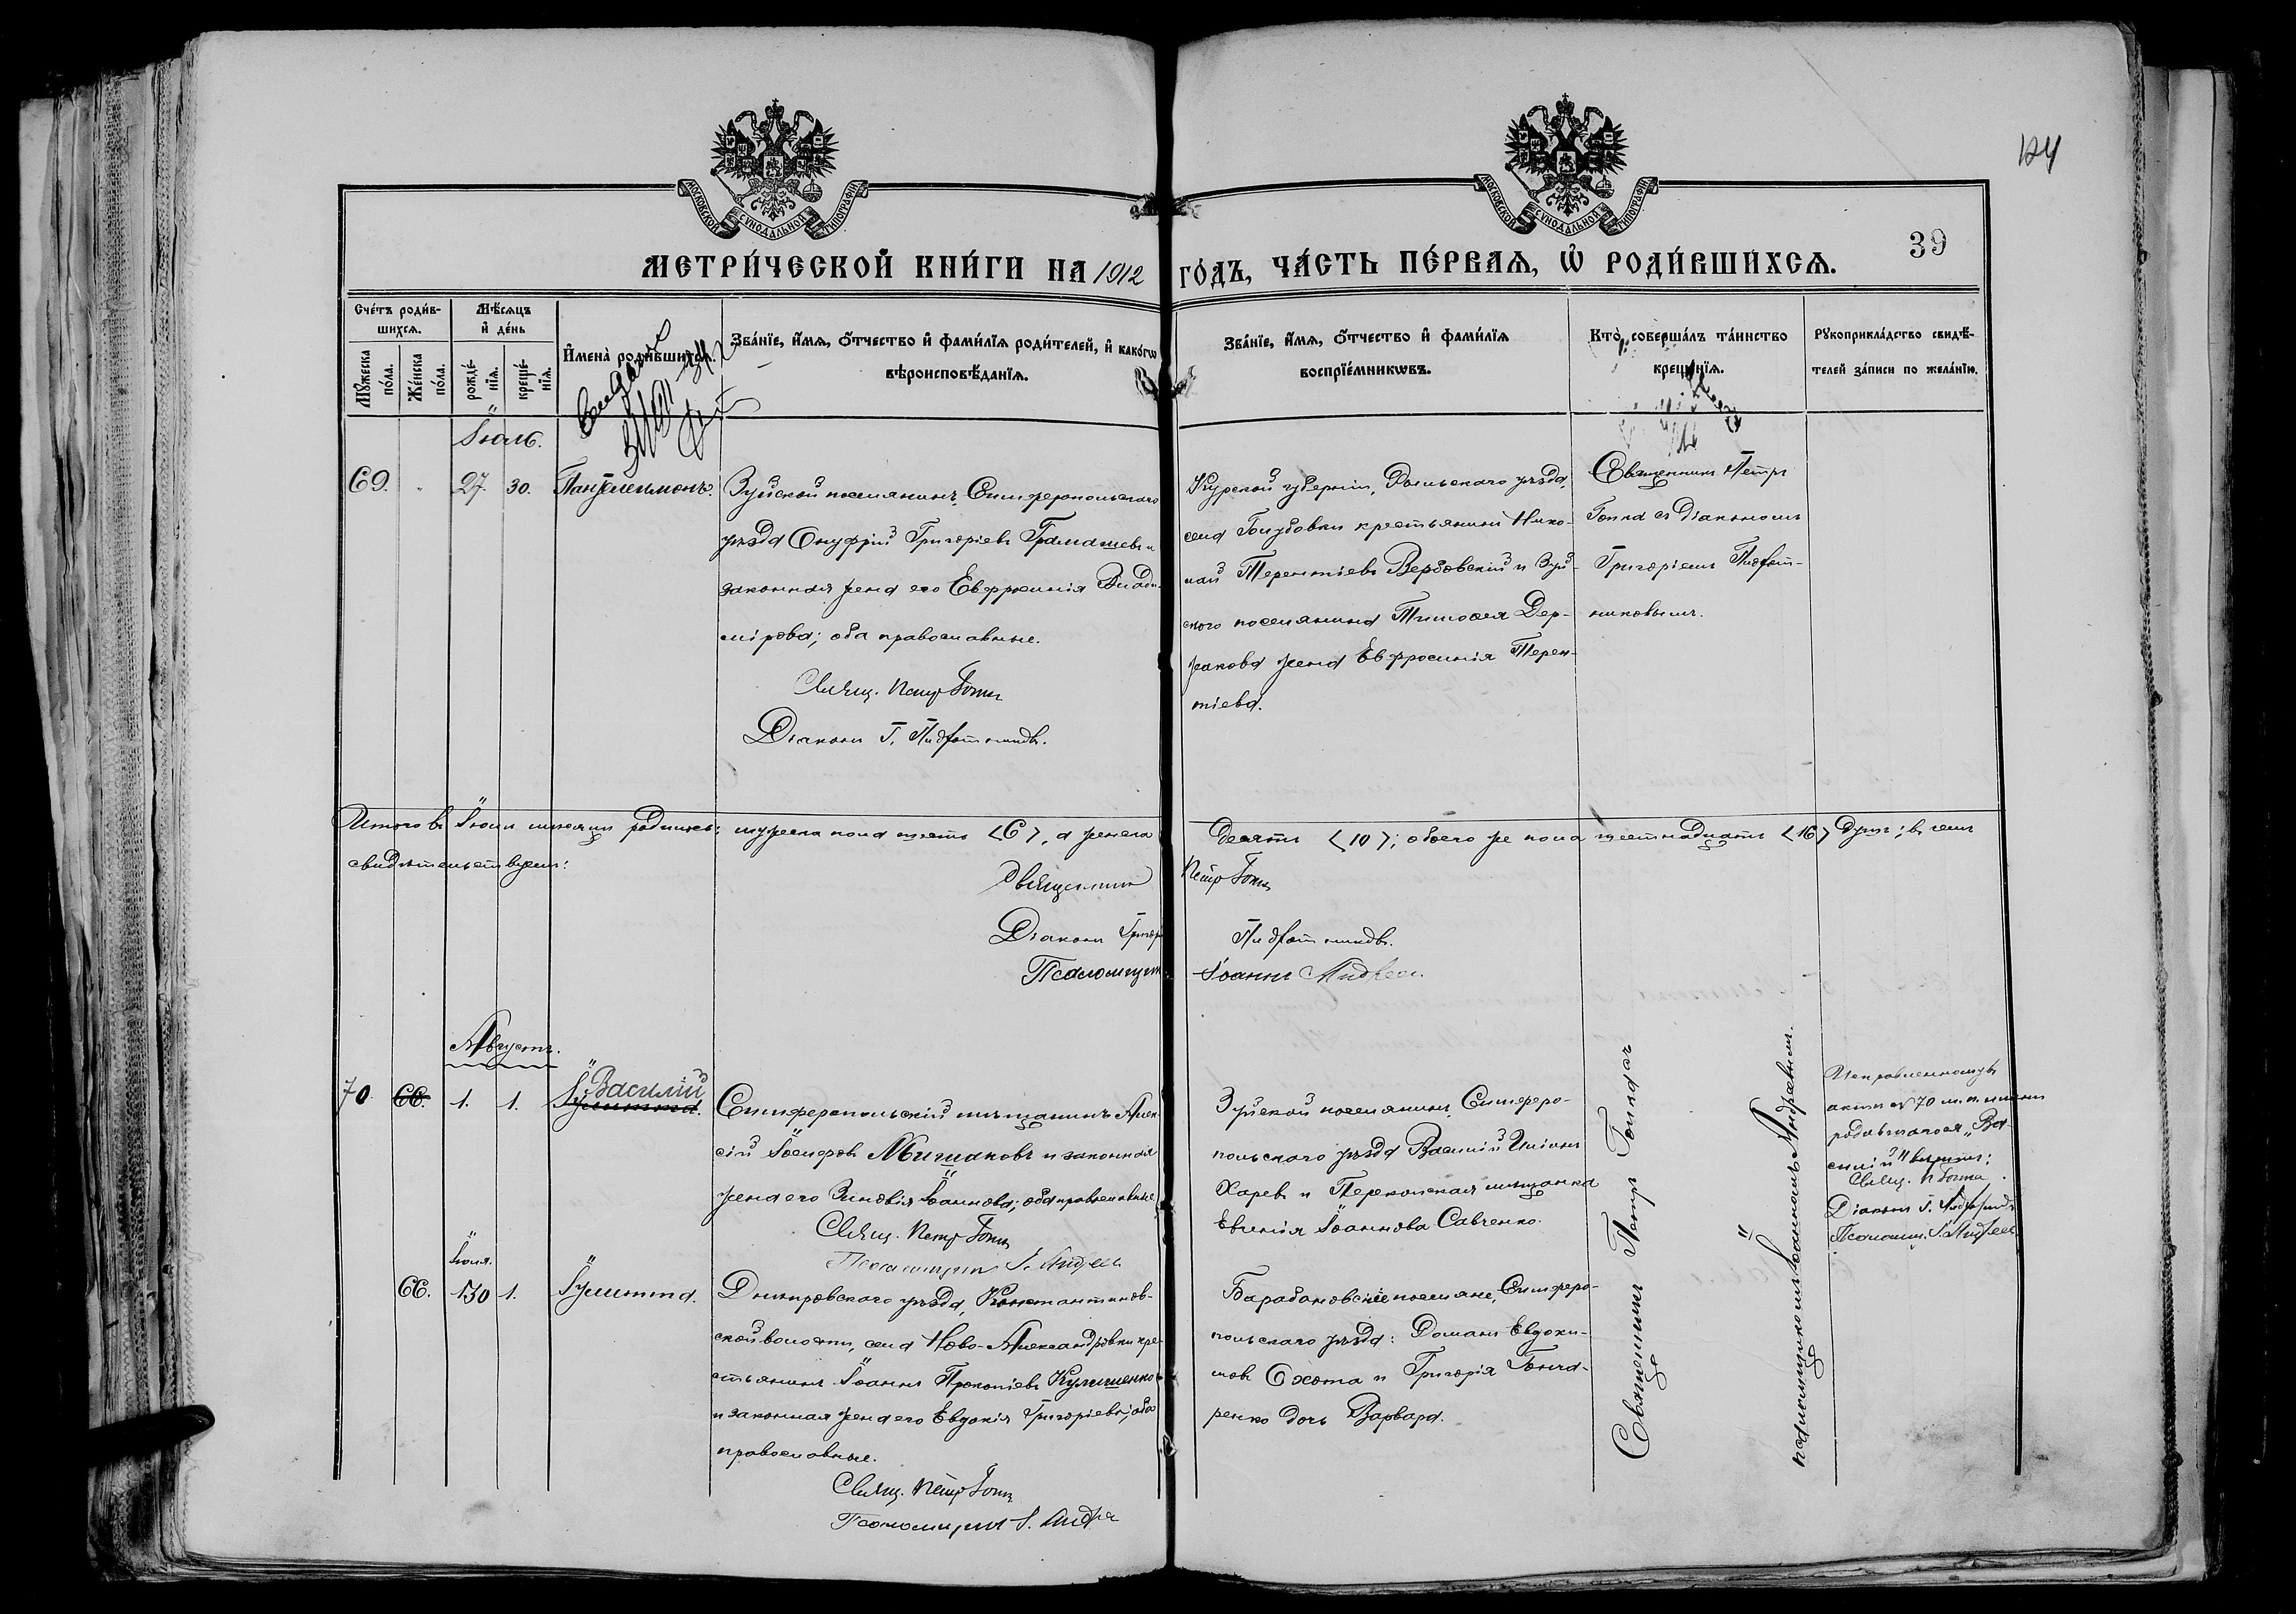 124
39
МОСКОВСКОЙ СѴНОДАЛЬНОЙ ТИПОГРАФІИ
МОСКОВСКОЙ СѴНОДАЛЬНОЙ ТИПОГРАФІИ
МЕТРИ́ЧЕСКОЙ КНИ́ГИ НА 1912 ГО́ДЪ, ЧА́СТЬ ПЕ́РВАѦ, Ѽ РОДИ́ВШИХСѦ.
Сче́тъ роди́в-
шихсѧ.
Мꙋжеска по́ла.
Же́нска по́ла.
Мѣ́сѧцъ
и҆ де́нь
рожде́-
нїѧ.
креще́-
нїѧ.
И҆мена̀ роди́вшихсѧ.
Зва́нїе, и҆́мѧ, ѻ҆́тчество и҆ фами́лїѧ роди́телей, и҆ како́гѡ
вѣроисповѣ́данїѧ.
Зва́нїе, и҆́мѧ, ѻ҆́тчество и҆ фами́лїѧ
воспрїе́мникѡвъ.
Кто̀ соверша́лъ та́инство
креще́нїѧ.
Рꙋкоприкла́дство свидѣ́-
телей за́писи по жела́нїю.
Іюль.
69. 27. 30. Пантелеимонъ.
Зуйской поселянинъ, Симферопольскаго
уѣзда Онуфрій Григоріевъ и
законная жена его Евфросинія Влади-
мірова; оба православные.
Свящ. Петръ Гонка
Діаконъ Г.
Курской губерніи, Рыльскаго уѣзда,
села Голубовки крестьянинъ Нико-
лай Терентіевъ Вербовскій и Зуй-
скаго поселянина Тимоѳея Дер-
жакова жена Евфросинія Терен-
тіева.
Священникъ Петръ
Гонка съ Діакономъ
Григоріемъ
никовымъ.
Итого въ Іюлѣ мѣсяцѣ родилось: мужеска пола шесть <6>, а женска десять <10>; обоего же пола шестнадцать <16> душъ; въ чемъ
свидѣтельствуемъ:
Священникъ Петръ Гонка
Діаконъ
Псаломщикъ Іоаннъ Андреев
Августъ.
70. 66. 1. 1. Василій Іулитта.
Симферопольскій мѣщанинъ Алек-
сій Іосифовъ Мишаковъ и законная
жена его Зиновія Іоаннова; оба православные
Свящ. Петръ Гонка
Псаломщикъ І. Андреев
Зуйской поселянинъ, Симферо-
польскаго уѣзда Василій Иліинъ
Харевъ и Перекопская мѣщанка
Евгенія Іоаннова Савченко.
Исправленному въ
актѣ № 70 м. п. имени
родившагося „Ва-
силій" вѣрить:
Свящ. П. Гонка
Діаконъ Г.
Псаломщ. І. Андреев
Іюля.
66. 30 1. Іулитта.
Днѣпровскаго уѣзда, Константинов-
ской волости, села Ново-Александровки кре-
стьянинъ Іоаннъ Прокопіевъ Кулишенко
и законная жена его Евдокія Григоріева; оба
православные.
Свящ. Петръ Гонка
Псаломщикъ І. Андреев
Барабановскіе поселяне, Симферо-
польскаго уѣзда: Романъ Евдоки-
мовъ Охота и Григорія Гонча-
ренко дочь Варвара.
Священникъ Петръ Гонка съ
псаломщикомъ Іоанномъ Андреевымъ.